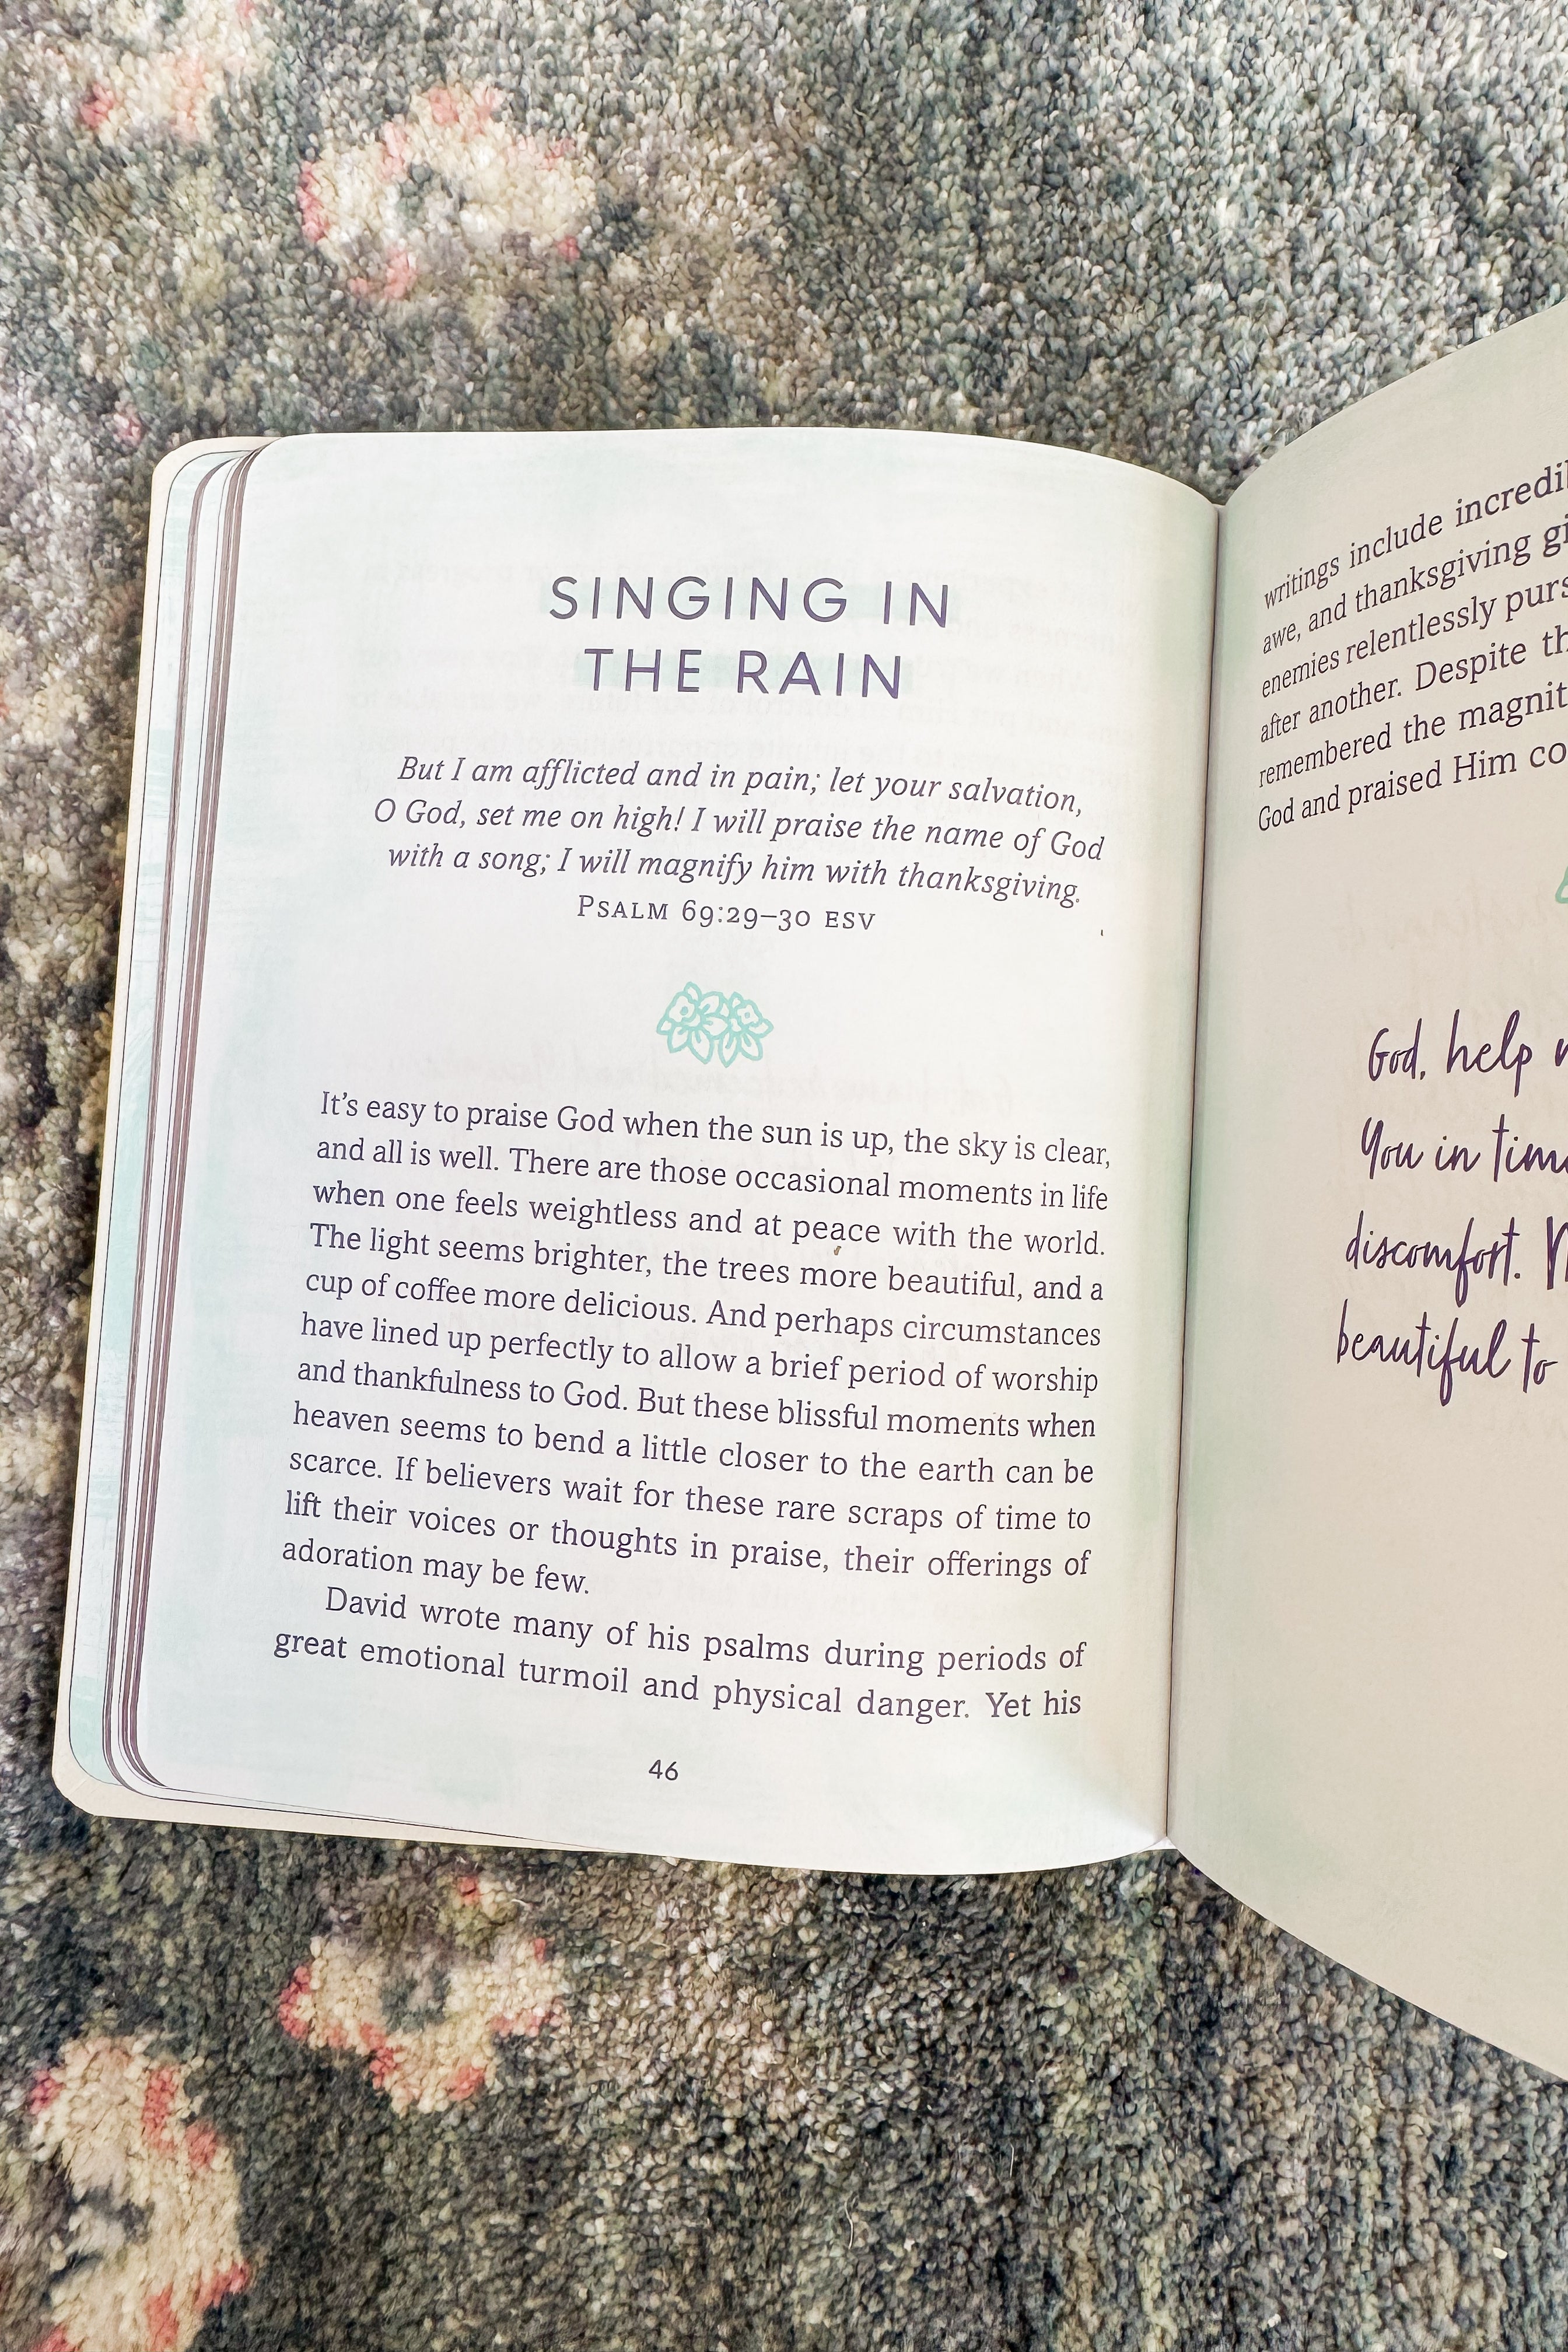 SINGING IN
THE RAIN
But I am afflicted and in pain; let your salvation,
O God, set me on high! I will praise the name of God
with a song; I will magnify him with thanksgiving.
PSALM 69:29–30 ESV
It's easy to praise God when the sun is up, the sky is clear,
and all is well. There are those occasional moments in life
when one feels weightless and at peace with the world.
The light seems brighter, the trees more beautiful, and a
cup of coffee more delicious. And perhaps circumstances
have lined up perfectly to allow a brief period of worship
and thankfulness to God. But these blissful moments when
heaven seems to bend a little closer to the earth can be
scarce. If believers wait for these rare scraps of time to
lift their voices or thoughts in praise, their offerings of
adoration may be few.
David wrote many of his psalms during periods of
great emotional turmoil and physical danger. Yet his
46
writings include
awe, and thanksgiving
enemies relentlessly
after another. Despite
remembered the
God and praised Him
God, help
You in
discomfort.
beautiful to